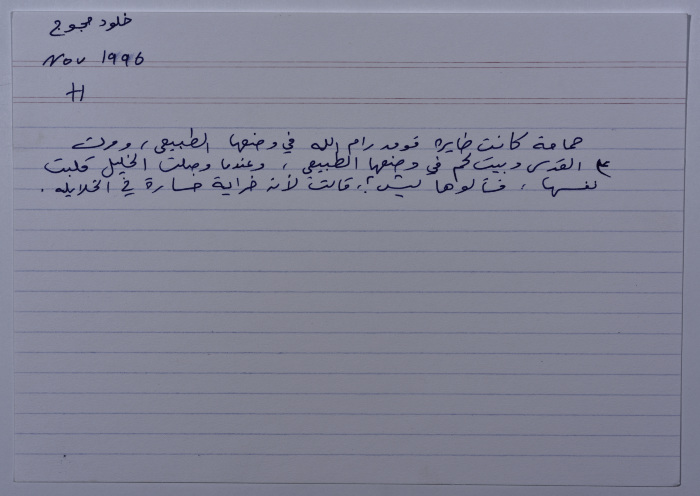 خلود مجوج
Nov 1996
H
حمامة كانت طايره فوق رام الله في وضعها الطبيعي، ومرت
ع القدس وبيت لحم في وضعها الطبيعي، وعندما وصلت الخليل قلبت
نفسها، فسألوها ليش؟، قالت لأنه خراية خسارة في الخلايله.